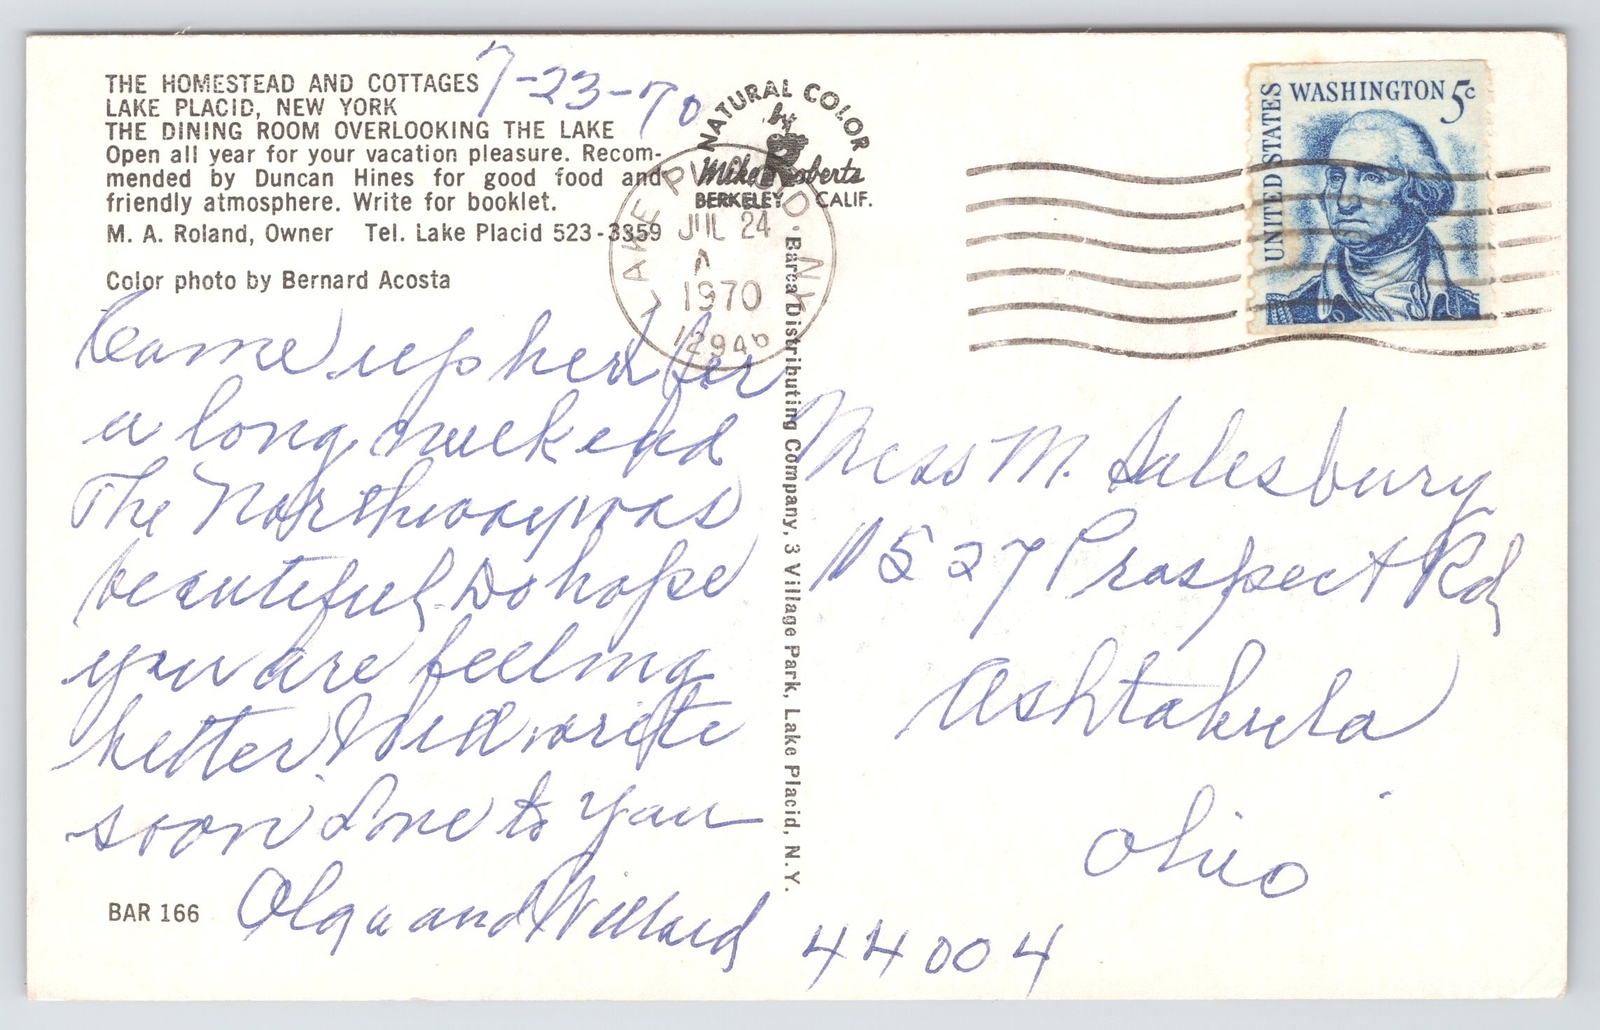 THE HOMESTEAD AND COTTAGES
LAKE PLACID, NEW YORK
THE DINING ROOM OVERLOOKING THE LAKE
Open all year for your vacation pleasure. Recom-
mended by Duncan Hines for good food and
friendly atmosphere. Write for booklet.
M. A. Roland, Owner Tel. Lake Placid 523-3359
Color photo by Bernard Acosta
7-23-70
NATURAL COLOR
by
Mike Roberts
BERKELEY CALIF.
LAKE PLACID NY
JUL 24
A
1970
12946
UNITED STATES
WASHINGTON 5c
Came up here for
a long weekend
The Northway was
beautiful. Do hope
you are feeling
better Will write
soon Love to you
Olga and Willard
BAR 166
Barca Distributing Company, 3 Village Park, Lake Placid, N.Y.
Miss M. Salesbury
1527 Prospect Rd
Ashtabula
Ohio
44004